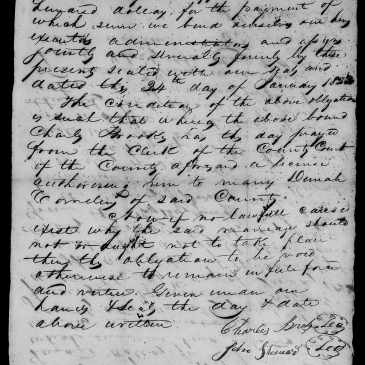 for the payment of
which sum we bind ourselves our heirs
executors administrators and assigns
jointly and severally firmly by these
presents sealed with our seals and
dated this 24th day of January
The condition of the above obligation
is such that whereas the above bound
Charles has this day prayed
from the Clerk of the County Court
of the County aforesaid a license
authorising him to marry Dinah
of said County
Now if no lawfull cause
exist why the said marriage should
not or ought not to take place
then this obligation to be void
otherwise to remain in full force
and virtue Given under our
hands & seals the day & date
above written
Charles
John